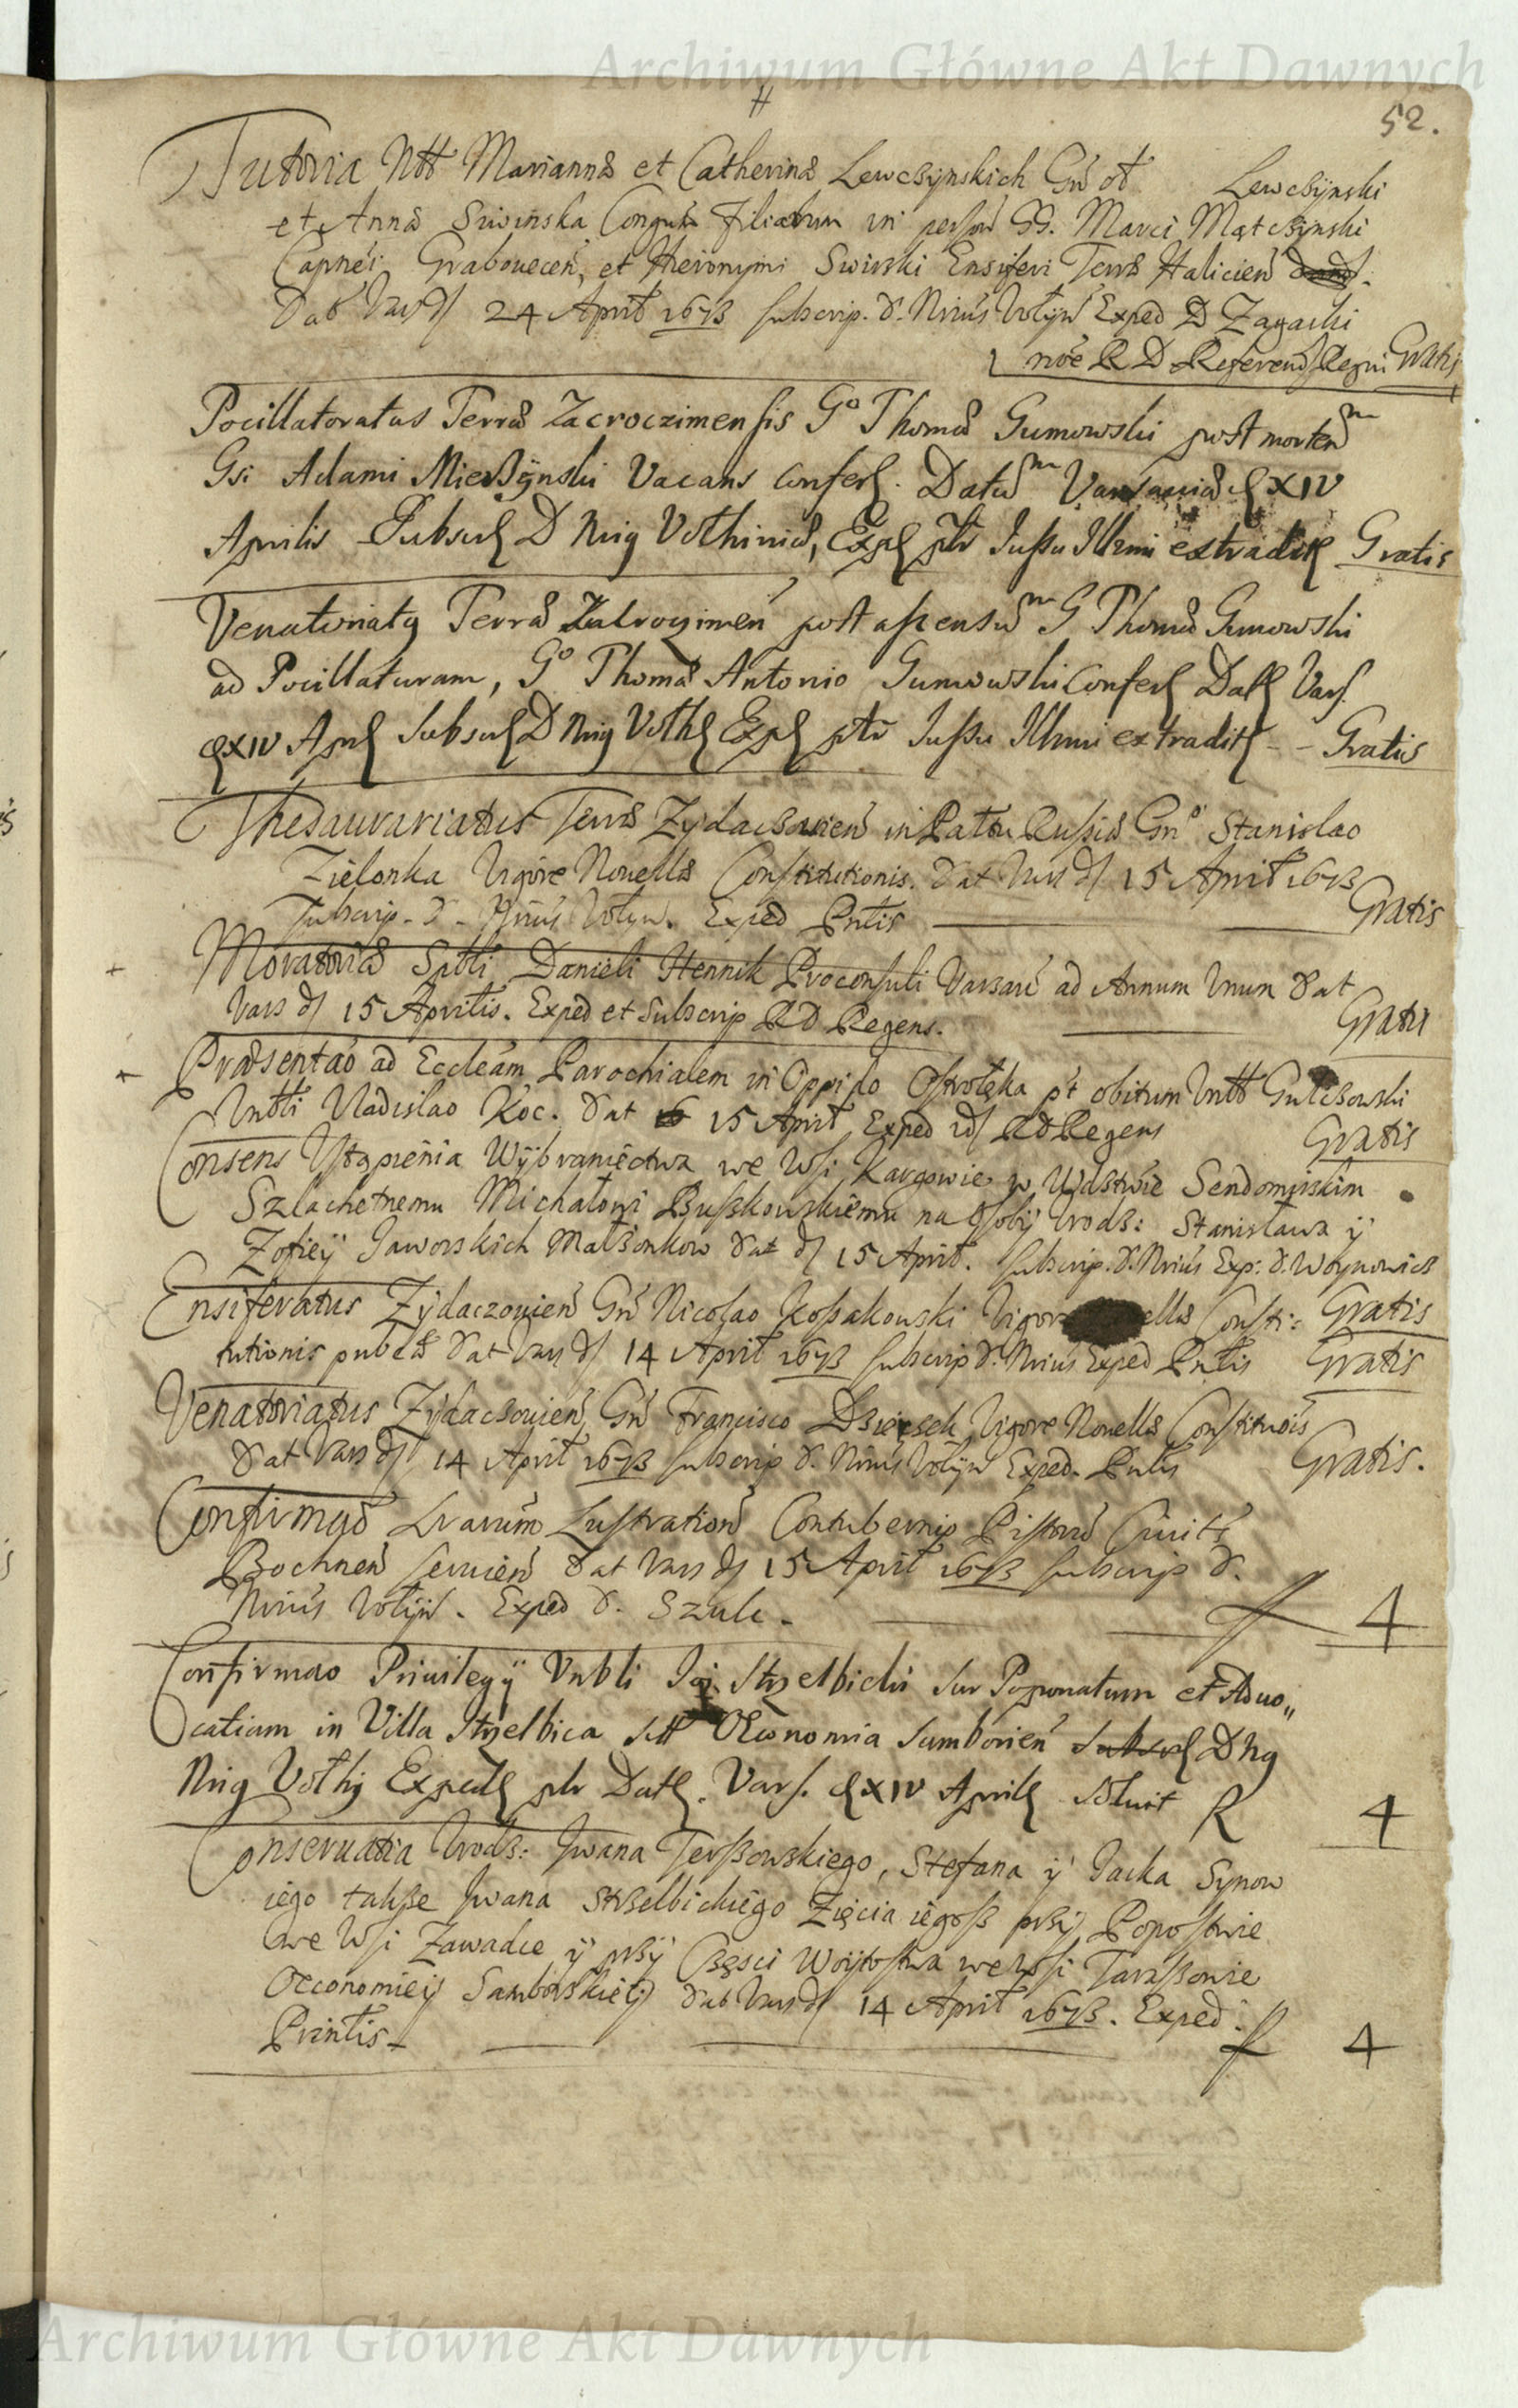 Archiwum Główne Akt Dawnych
52.
Tutoria Nott Mariannæ et Catherinæ Lewczÿnskich Gñ ot Lewczÿnski
et Annæ Swinska Filiabum in GG. Marci Matczinski
Capnei Grabouecen̄, et Hieronymi Swirski Ensiferi Terræ Halicien̄
Dat Vars d 24 April 1673 subscrip. D. Nrius Volÿn Exped D Zagacki
nōe R D Referend Regni Gratis
Pocillatoratus Terræ Zacroczimensis Gᵒ Thomæ Gumowski post mortem
Gsi Adami Mieszÿnski Vacans Confer. Datum Varsaviæ XIV
Aprilis Subscr D Nrig Volhiniæ, Exp ptr Jussu Illmi extradit Gratis
Venatoriatg Terræ Zakrozimen̄ post assensum G Thomæ Gumowski
ad Pocillaturam, Gᵒ Thomæ Antonio Gumowski Confer Dat Vars.
XIV Apr Subscr D Nrig Volh Exp ptr Jussu Illmi extradit - - Gratis
Thesaurariatus Terræ Zydaczouien̄ in Patu Russiæ Gnᵒ Stanislao
Zielonka Vigore Nouellæ Constitutionis. Dat Vars d 15 April 1673
Subscrip. D. Nrius Volyn. Exped Pntis Gratis
Moratoriæ Spbli Danieli Hennik Proconsuli Varsau ad Annum Unum Dat
Vars d 15 Aprilis. Exped et Subscrip RD Regens. Gratis
Præsentao ad Eccleam Parochialem in Oppido Ostrołęka pt obitum Vnbtt Gulczowski
Vnbli Vladislao Koc. Dat 15 April Exped id RD Regens Gratis
Consens Vstąpienia Wÿbraniectwa we Wsi Kargowie w Wdstwie Sendomirskim
Szlachetnemu Michałowi Buszkowskiemu na Osobÿ Vrodz: Stanisława ÿ
Zofieÿ Jaworskich Małżonkow Dat d 15 April. subscrip. D. Nrius Exp: D. Woynowicz
Ensiferatus Zÿdaczouien̄ Gñ Nicolao Kossakouski Vigore ellæ Consti: Gratis
tutionis publcæ Dat Vars d 14 April 1673 subscrip D. Nrius Exped Pntis Gratis
Venatoriatus Zÿdaczouien̄ Gñ Francisco Vigore Nouellæ Constitnōis
Dat Vars d 14 April 1673 subscrip D. Nrius Volÿn Exped. Pntis Gratis.
Confirmao Lrarum Lustrationũ Contubernio Pistorũ Ciuit
Bochnen̄ seruien̄ Dat Vars d 15 April 1673 subscrip D.
Nrius Volÿn. Exped D. Szulc. f 4
Confirmao Priuilegÿ Vnbli Strzelbicki sur Poponatum et Aduo„
catiam in Villa Strzelbica Oeconomia Samborien̄ Dng
Nrig Volhÿ Exped ptr Dat. Vars. XIV April soluit R 4
Conseruatia Vrodz: Jwana Terszowskiego, Stefana ÿ Jacka Synow
iego takze Jwana Strzelbickiego Zięcia iegosz przÿ Popostwie
we Wsi Zawadce ÿ przÿ Części Woÿtostwa we Wsi Taraszowie
Oeconomieÿ Samborskieÿ Dat Vars d 14 April 1673. Exped:
Printis f 4
Archiwum Główne Akt Dawnych